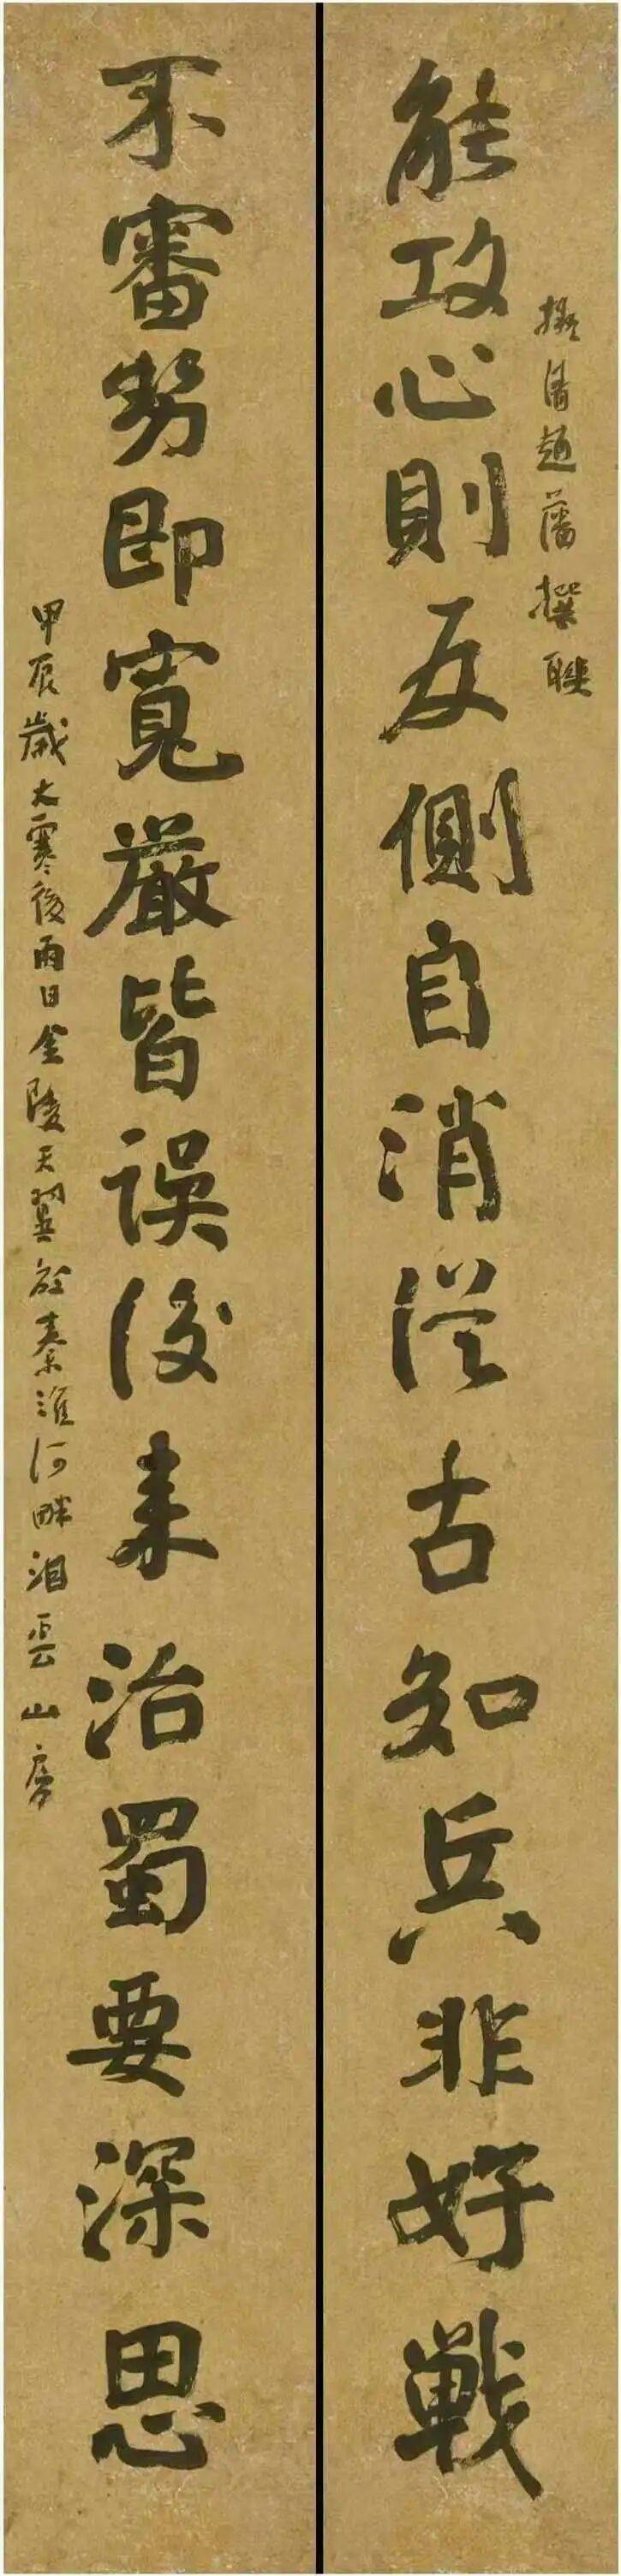 擬清趙藩撰聯
能攻心則反側自消從古知兵非好戰
不審勢即寬嚴皆誤後來治蜀要深思
甲辰歲大寒後兩日金陵天翼於秦淮河畔泪雲山房